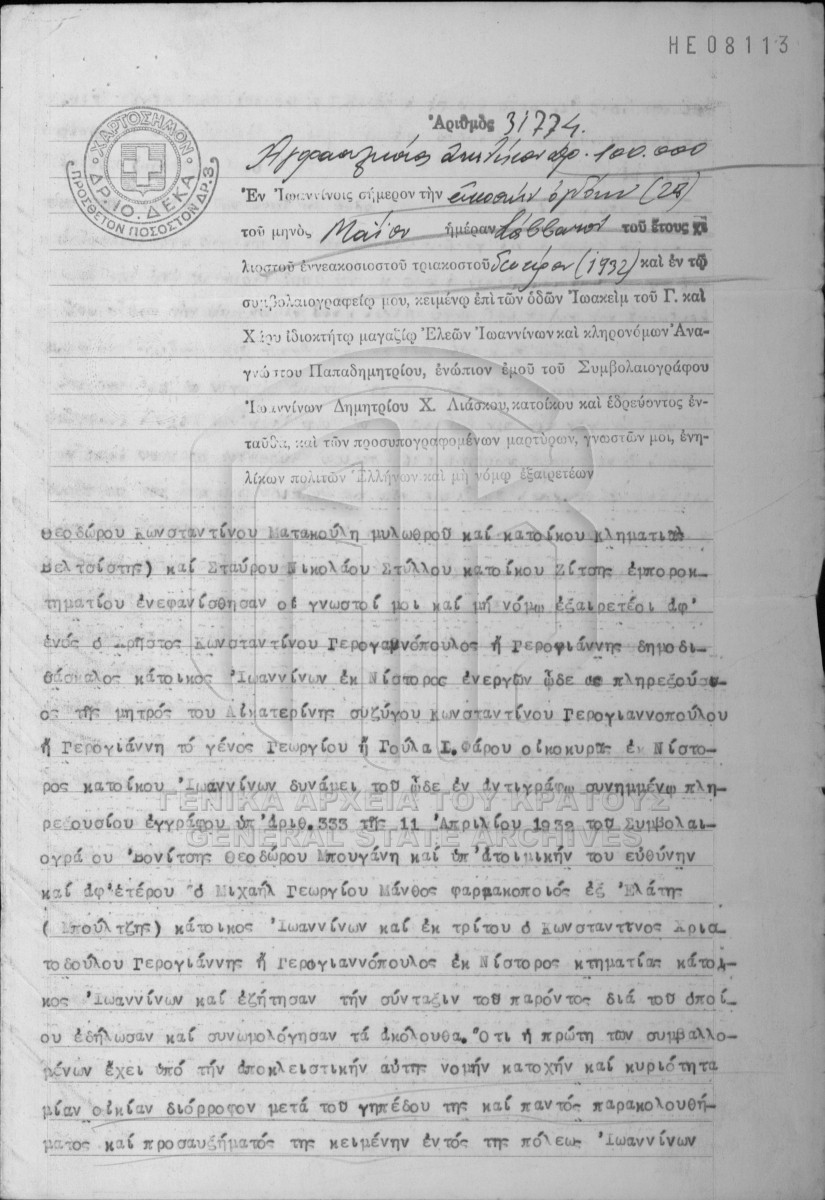 ΗΕ08113
ΧΑΡΤΟΣΗΜΟΝ
ΔΡ. 10. ΔΕΚΑ
ΠΡΟΣΘΕΤΟΝ ΠΟΣΟΣΤΟΝ ΔΡ. 3
Ἀριθμὸς 31774.
δρ. 100.000
Ἐν Ἰωαννίνοις σήμερον τὴν εἰκοστὴν ὀγδόην (28)
τοῦ μηνὸς Μαΐου ἡμέραν Σάββατον τοῦ ἔτους χι
λιοστοῦ ἐννεακοσιοστοῦ τριακοστοῦ δευτέρου (1932) καὶ ἐν τῷ
συμβολαιογραφείῳ μου, κειμένῳ ἐπὶ τῶν ὁδῶν Ἰωακεὶμ τοῦ Γ. καὶ
ἰδιοκτήτῳ μαγαζίῳ Ἐλεῶν Ἰωαννίνων καὶ κληρονόμων Ἀνα-
γνώστου Παπαδημητρίου, ἐνώπιον ἐμοῦ τοῦ Συμβολαιογράφου
Ἰωαννίνων Δημητρίου Χ. Λιάσκου, κατοίκου καὶ ἑδρεύοντος ἐν-
ταῦθα, καὶ τῶν προσυπογραφομένων μαρτύρων, γνωστῶν μοι, ἐνη-
λίκων πολιτῶν Ἑλλήνων καὶ μὴ νόμῳ ἐξαιρετέων
Θεοδώρου Κωνσταντίνου Ματακούλη μυλωθροῦ καί κατοίκου Κληματιᾶς
Βελτσίστης) καί Σταύρου Νικολάου Στύλλου κατοίκου Ζίτσης ἐμποροκ_
τηματίου ἐνεφανίσθησαν οἱ γνωστοί μοι καί μή νόμῳ ἐξαιρετέοι ἀφ'
ἑνός ὁ Χρῆστος Κωνσταντίνου Γερογιαννόπουλος ἤ Γερογιάννης δημοδι_
δάσκαλος κάτοικος Ἰωαννίνων ἐκ Νίστορος ἐνεργῶν ὧδε ὡς πληρεξούσι_
ος τῆς μητρός του Αἰκατερίνης συζύγου Κωνσταντίνου Γερογιαννοπούλου
ἤ Γερογιάννη τό γένος Γεωργίου ἤ Γούλα Ι. Φάρου οἰκοκυρᾶς ἐκ Νίστο_
ρος κατοίκου Ἰωαννίνων δυνάμει τοῦ ὧδε ἐν ἀντιγράφῳ συνημμένῳ πλη_
ρεξουσίου ἐγγράφου ὑπ'ἀριθ.333 τῆς 11 Ἀπριλίου 1932 τοῦ Συμβολαι_
ογρά ου Βονίτσης Θεοδώρου Μπουγάνη καί ὑπ'ἀτοιμικήν του εὐθύνην
καί ἀφ'ἑτέρου ὁ Μιχαήλ Γεωργίου Μάνθος φαρμακοποιός ἐξ Ἐλάτης
( Μπούλτζης) κάτοικος Ἰωαννίνων καί ἐκ τρίτου ὁ Κωνσταντῖνος Χρισ_
τοδούλου Γερογιάννης ἤ Γερογιαννόπουλος ἐκ Νίστορος κτηματίας κάτοι_
κος Ἰωαννίνων καί ἐζήτησαν τήν σύνταξιν τοῦ παρόντος διά τοῦ ὁποί_
ου ἐδήλωσαν καί συνωμολόγησαν τά ἀκόλουθα. Ὅτι ἡ πρώτη των συμβαλλο_
μένων ἔχει ὑπό τήν ἀποκλειστικήν αὐτης νομήν κατοχήν καί κυριότητα
μίαν οἰκίαν διόρροφον μετά τοῦ γηπέδου της καί παντός παρακολουθή_
ματος καί προσαυξήματός της κειμένην ἐντός της πόλεως Ἰωαννίνων
ΓΕΝΙΚΑ ΑΡΧΕΙΑ ΤΟΥ ΚΡΑΤΟΥΣ
GENERAL STATE ARCHIVES